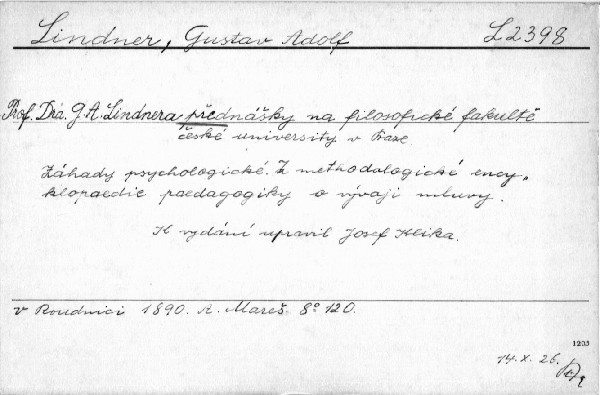 Lindner, Gustav Adolf L 2398
Prof. Dra. G. A. Lindnera přednášky na filosofické fakultě
české university v Praze.
Záhady psychologické. Z methodologické ency„
klopaedie paedagogiky o vývoji mluvy.
K vydání upravil Josef Klika.
v Roudnici 1890. A. Mareš. 8° 120.
1203
14. X. 26.